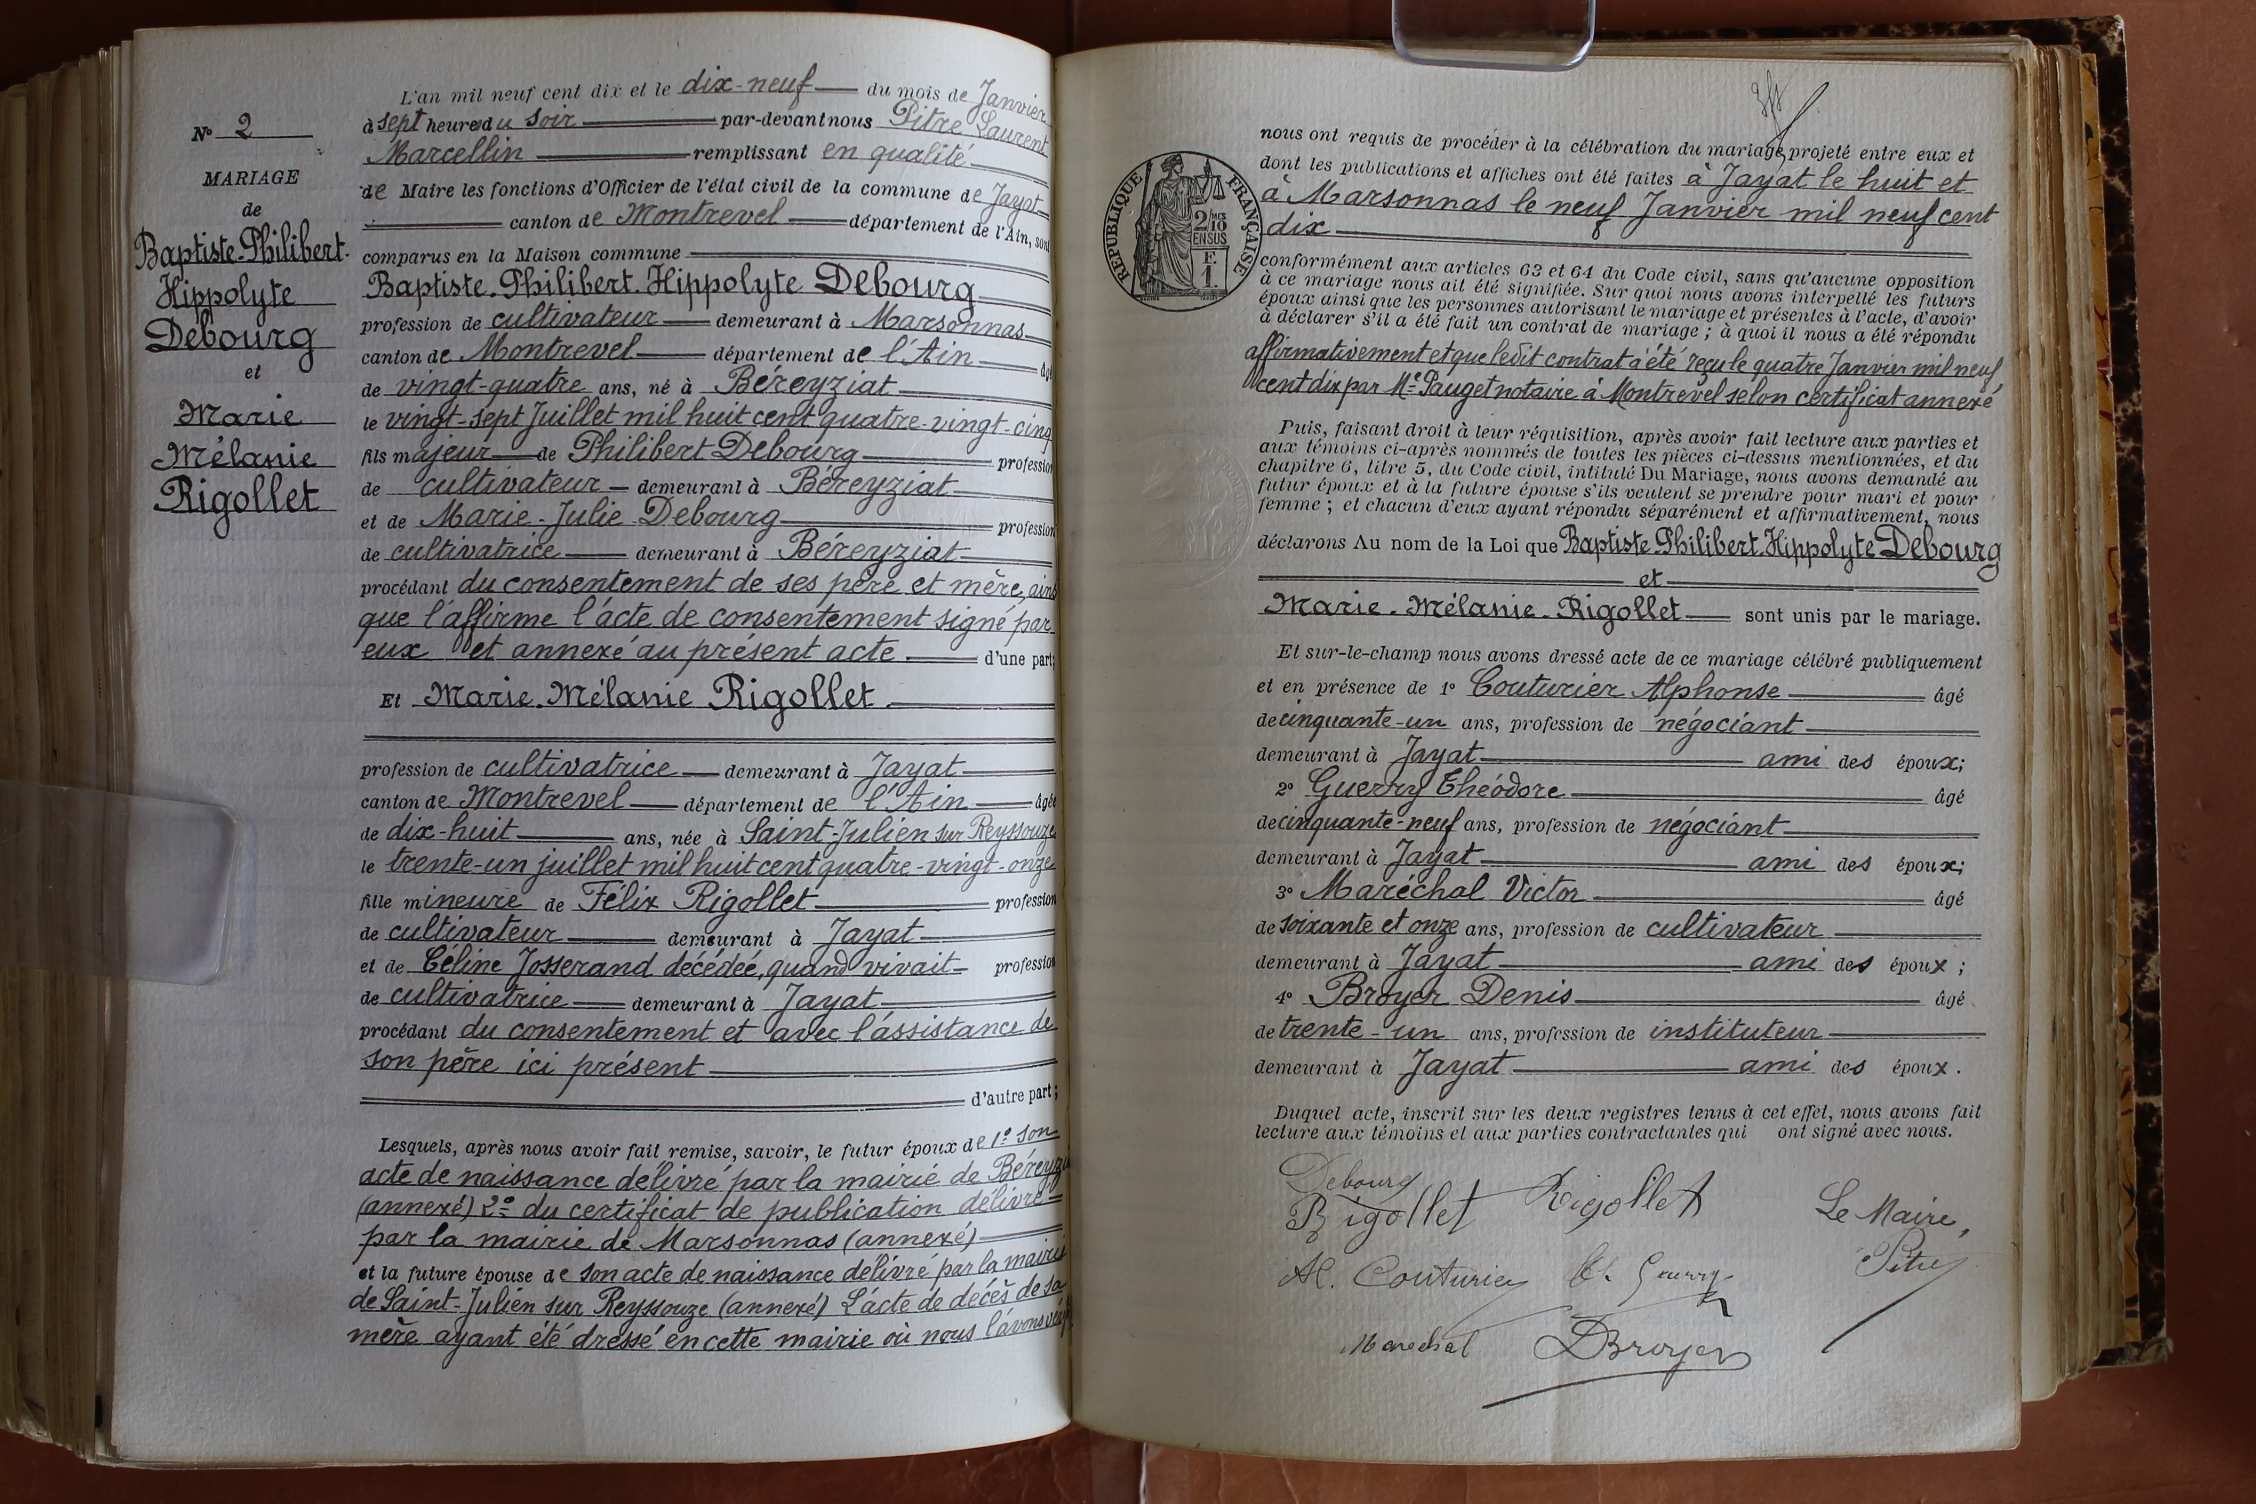 N° 2
MARIAGE
de
Baptiste-Philibert-
Hippolyte
Debourg
et
Marie
Mélanie
Rigollet
L'an mil neuf cent dix et le dix-neuf du mois de Janvier
à sept heures du soir par-devant nous Pitre Laurent
Marcellin remplissant en qualité
de Maire les fonctions d'Officier de l'état civil de la commune de Jayat
canton de Montrevel département de l'Ain, sont
comparus en la Maison commune
Baptiste-Philibert-Hippolyte Debourg
profession de cultivateur demeurant à Marsonnas
canton de Montrevel département de l'Ain âgé
de vingt-quatre ans, né à Béreyziat
le vingt-sept Juillet mil huit cent quatre-vingt-cinq
fils majeur de Philibert Debourg profession
de cultivateur demeurant à Béreyziat
et de Marie-Julie Debourg profession
de cultivatrice demeurant à Béreyziat
procédant du consentement de ses père et mère, ainsi
que l'affirme l'acte de consentement signé par
eux et annexé au présent acte d'une part;
Et Marie-Mélanie Rigollet
profession de cultivatrice demeurant à Jayat
canton de Montrevel département de l'Ain âgée
de dix-huit ans, née à Saint-Julien sur Reyssouze
le trente-un juillet mil huit cent quatre-vingt-onze
fille mineure de Félix Rigollet profession
de cultivateur demeurant à Jayat
et de Céline Josserand décédée, quand vivait profession
de cultivatrice demeurant à Jayat
procédant du consentement et avec l'assistance de
son père ici présent
d'autre part;
Lesquels, après nous avoir fait remise, savoir, le futur époux de 1° son
acte de naissance délivré par la mairie de Béreyzia
(annexé) 2° du certificat de publication délivré
par la mairie de Marsonnas (annexé)
et la future épouse de son acte de naissance délivré par la mairie
de Saint-Julien sur Reyssouze (annexé) L'acte de décès de sa
mère ayant été dressé en cette mairie où nous l'avons
RÉPUBLIQUE FRANÇAISE
2/10 MES
EN SUS
E.
1.
nous ont requis de procéder à la célébration du mariage projeté entre eux et
dont les publications et affiches ont été faites à Jayat le huit et
à Marsonnas le neuf Janvier mil neuf cent
dix
conformément aux articles 63 et 64 du Code civil, sans qu'aucune opposition
à ce mariage nous ait été signifiée. Sur quoi nous avons interpellé les futurs
époux ainsi que les personnes autorisant le mariage et présentes à l'acte, d'avoir
à déclarer s'il a été fait un contrat de mariage; à quoi il nous a été répondu
affirmativement et que ledit contrat a été reçu le quatre Janvier mil neuf
cent dix par Me Pauget notaire à Montrevel selon certificat annexé
Puis, faisant droit à leur réquisition, après avoir fait lecture aux parties et
aux témoins ci-après nommés de toutes les pièces ci-dessus mentionnées, et du
chapitre 6, titre 5, du Code civil, intitulé Du Mariage, nous avons demandé au
futur époux et à la future épouse s'ils veulent se prendre pour mari et pour
femme; et chacun d'eux ayant répondu séparément et affirmativement, nous
déclarons Au nom de la Loi que Baptiste-Philibert-Hippolyte Debourg
et
Marie-Mélanie-Rigollet sont unis par le mariage.
Et sur-le-champ nous avons dressé acte de ce mariage célébré publiquement
et en présence de 1° Couturier Alphonse âgé
de cinquante-un ans, profession de négociant
demeurant à Jayat ami des époux;
2° Guerry Théodore âgé
de cinquante-neuf ans, profession de négociant
demeurant à Jayat ami des époux;
3° Maréchal Victor âgé
de soixante et onze ans, profession de cultivateur
demeurant à Jayat ami des époux;
4° Broyer Denis âgé
de trente-un ans, profession de instituteur
demeurant à Jayat ami des époux.
Duquel acte, inscrit sur les deux registres tenus à cet effet, nous avons fait
lecture aux témoins et aux parties contractantes qui ont signé avec nous.
Debourg
Rigollet Rigollet
Le Maire,
Pitre
Al. Couturier Th. Guerry
Marechal DBroyer